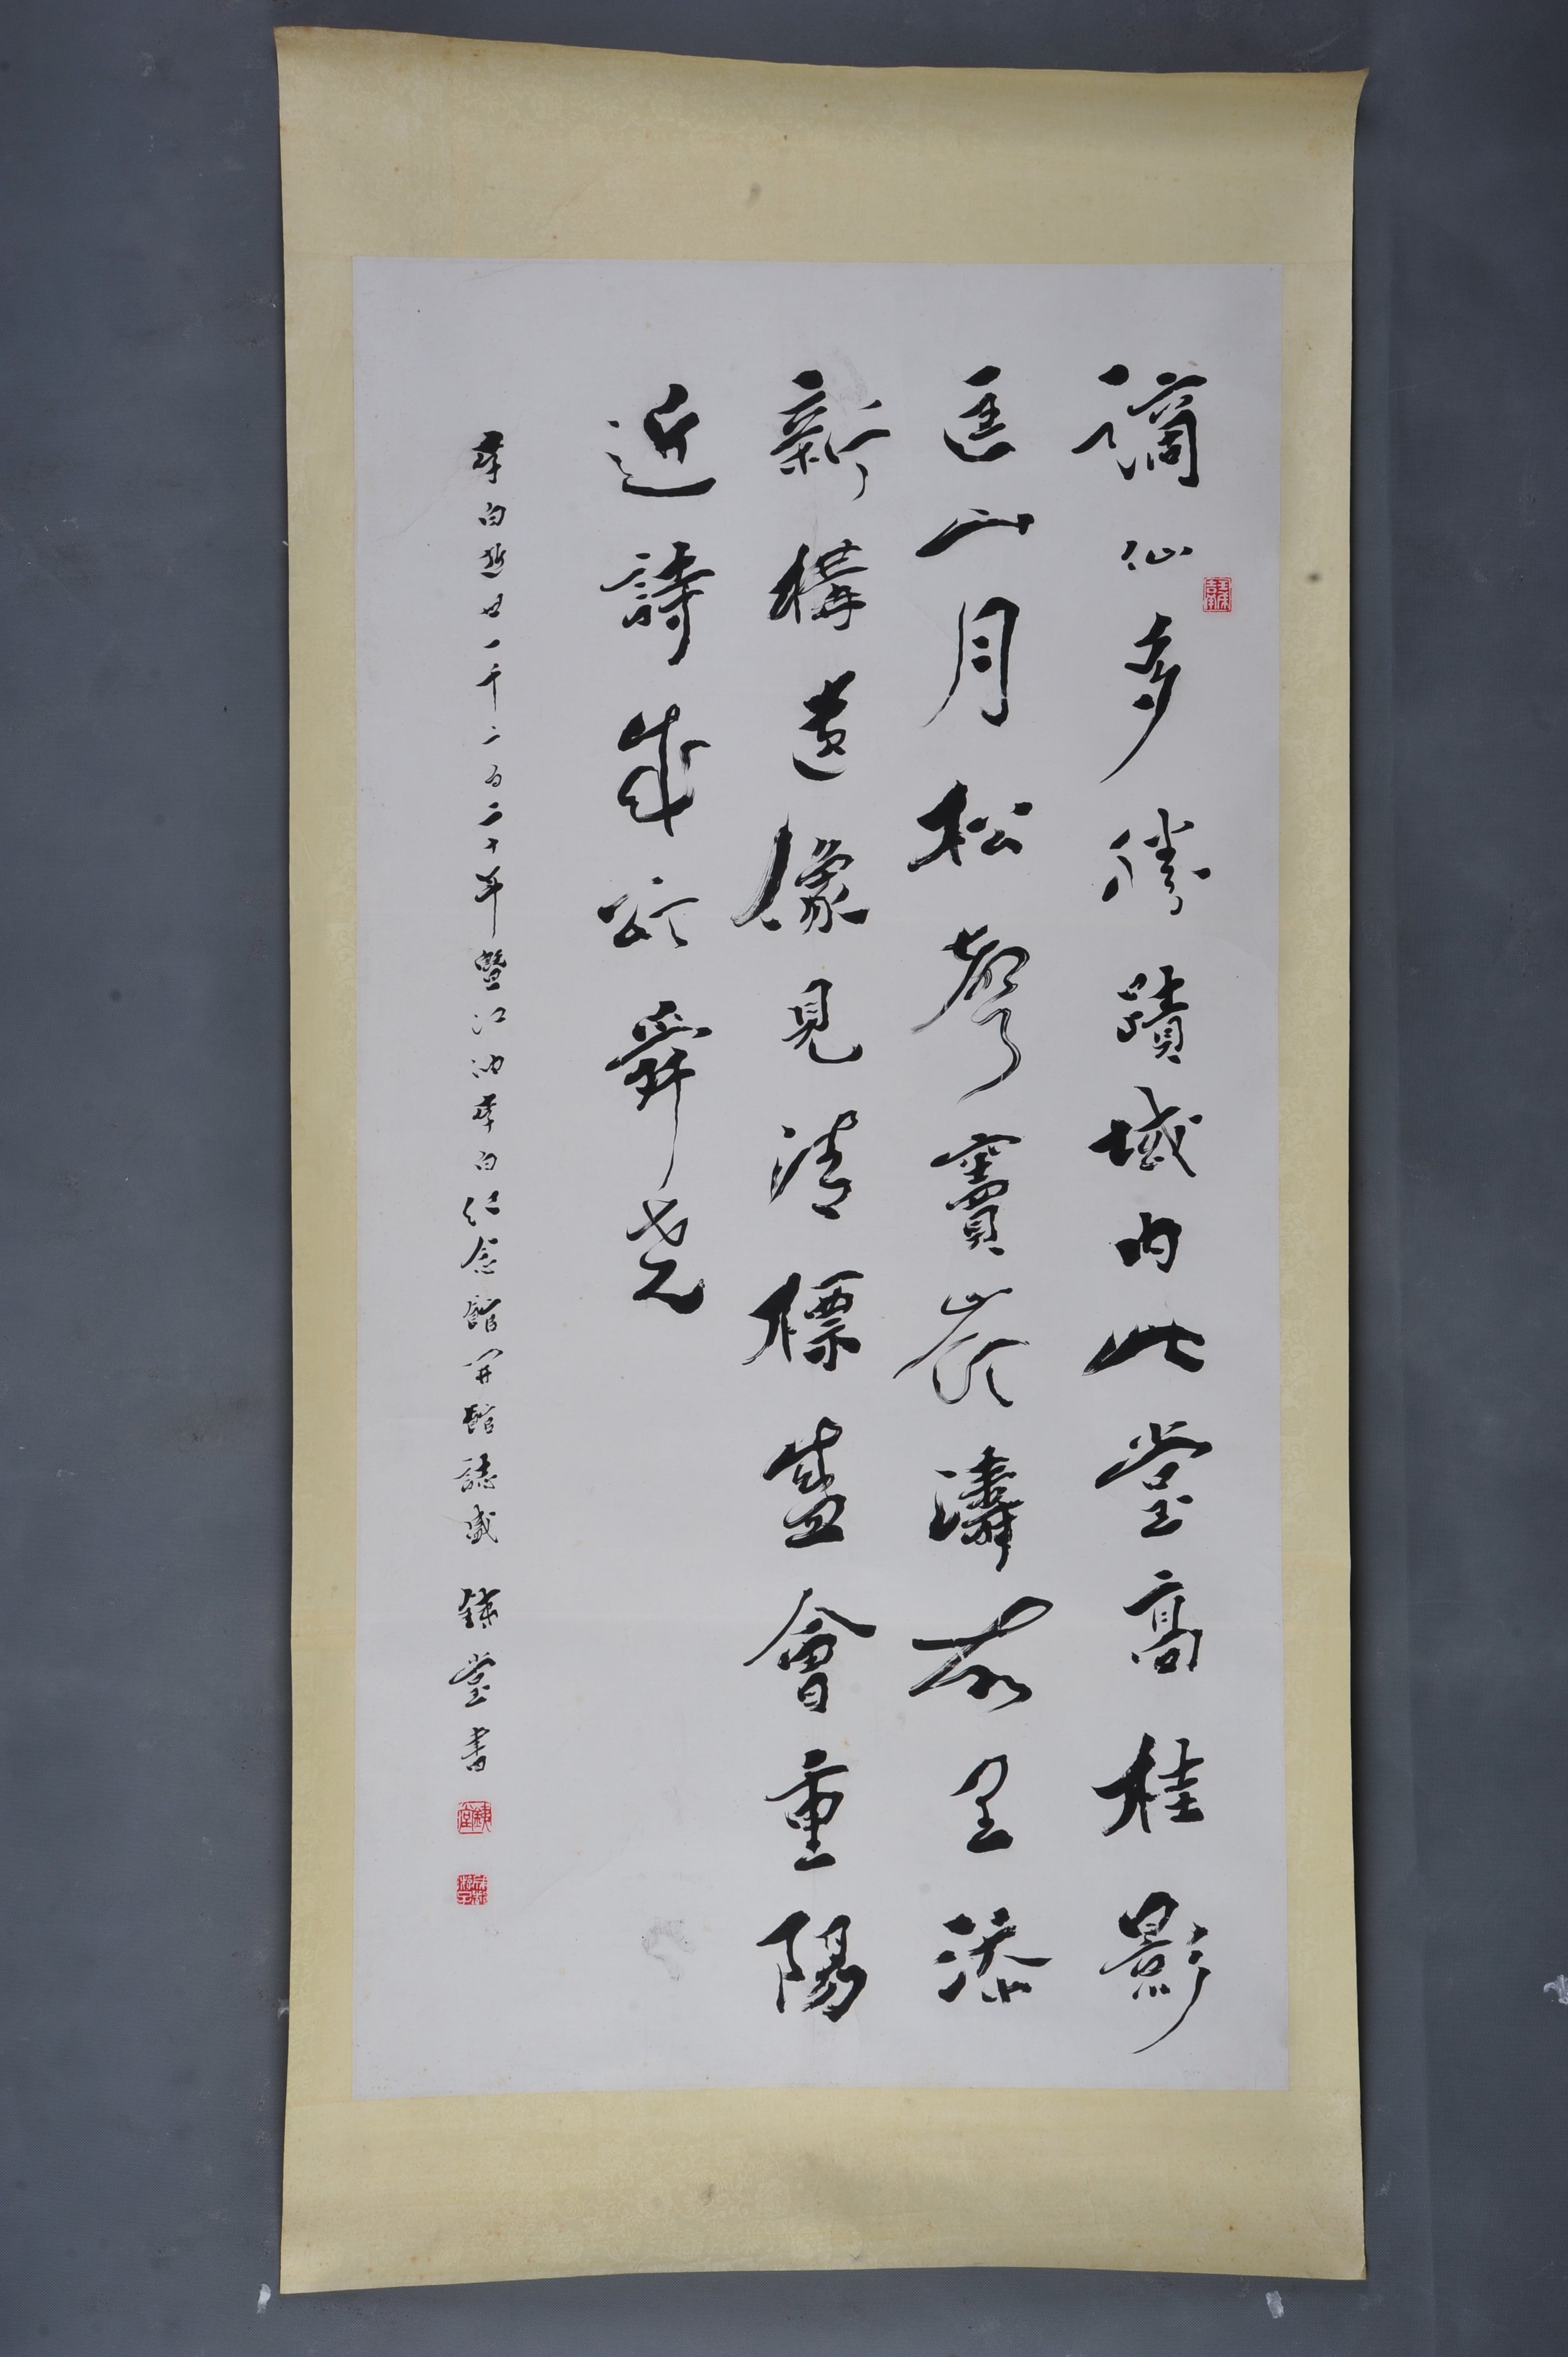 謫仙多勝蹟域內此堂高桂影
匡山月松聲竇嶺濤故里添
新構遺像見清標盛會重陽
近詩成頌舜堯
李白逝世一千二百二十年暨江油李白紀念館開館誌盛 鐵堂書